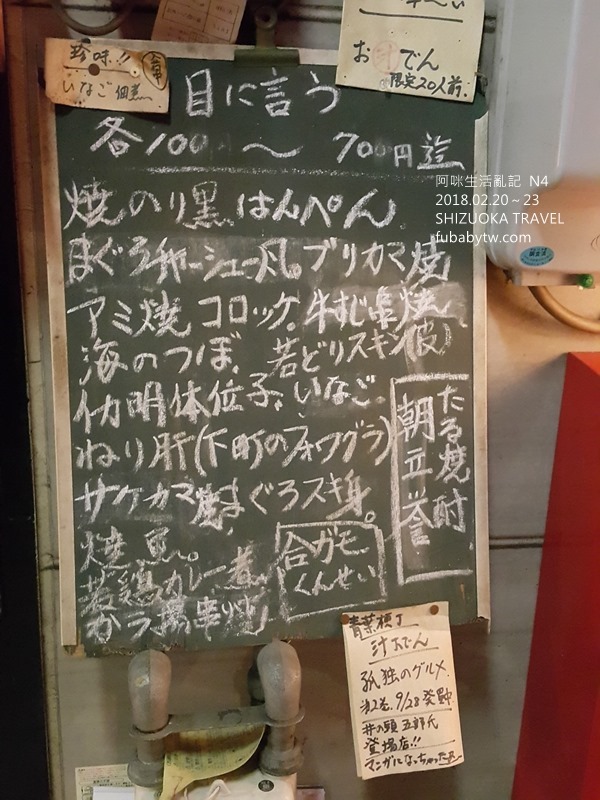 珍味!!
いなご佃煮
お でん
限定20人前.
目に言う
各100 〜 700円迄
焼のり黒はんぺん
まぐろチャーシュー風。ブリカマ焼
アミ焼コロッケ.牛すじ串焼
海のつぼ.若どりスキン(皮)
イカ明体位子.いなご.
ねり肝(下町のフォワグラ)
サケカマ焼 まぐろスキ身。
焼魚。
若鶏カレー煮
合ガモ
くんせい
たる焼酎
朝立誉
青葉横丁
汁おでん
孤独のグルメ.
第2巻.9/28発売
井の頭五郎氏
登場店!!
マンガになっちゃった
阿咪生活亂記 N4
2018.02.20~23
SHIZUOKA TRAVEL
fubabytw.com